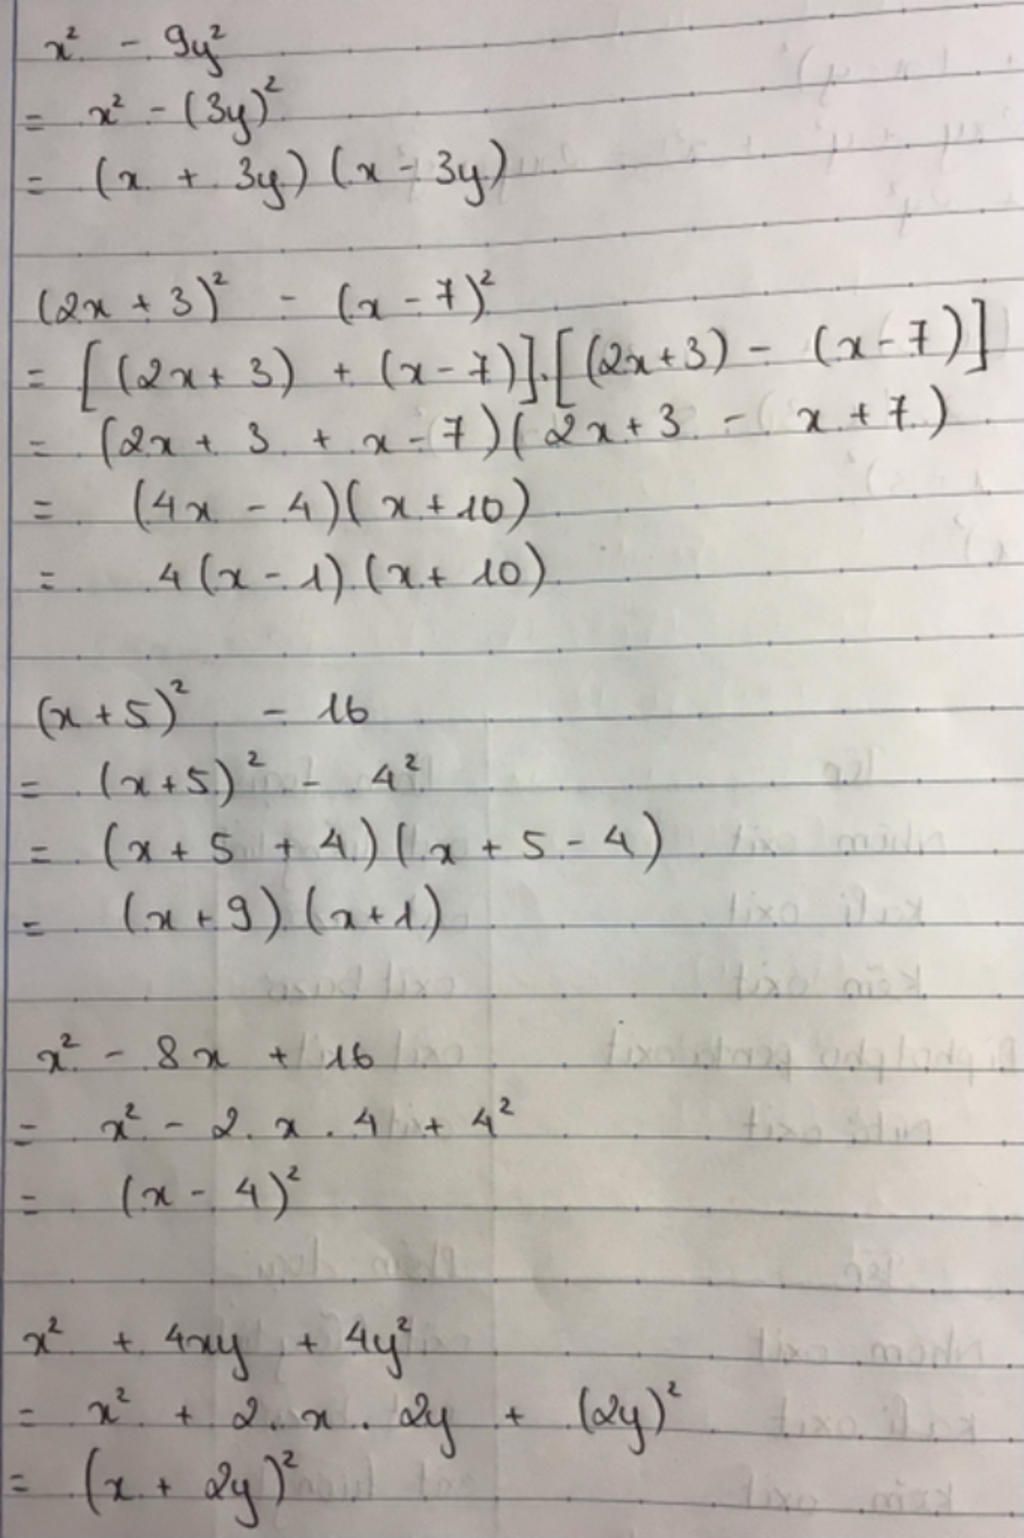 x² - 9y²
= x² - (3y)²
= (x + 3y) (x - 3y)
(2x + 3)² - (x - 7)²
= [(2x + 3) + (x - 7)].[(2x+3) - (x - 7)]
= (2x + 3 + x - 7)(2x + 3 - x + 7)
= (4x - 4)(x + 10)
= 4(x - 1).(x + 10)
(x + 5)² - 16
= (x+5)² - 4²
= (x + 5 + 4)(x + 5 - 4)
= (x + 9) (x + 1)
x² - 8x + 16
= x² - 2. x . 4 + 4²
= (x - 4)²
x² + 4xy + 4y²
= x² + 2. x . 2y + (2y)²
= (x + 2y)²